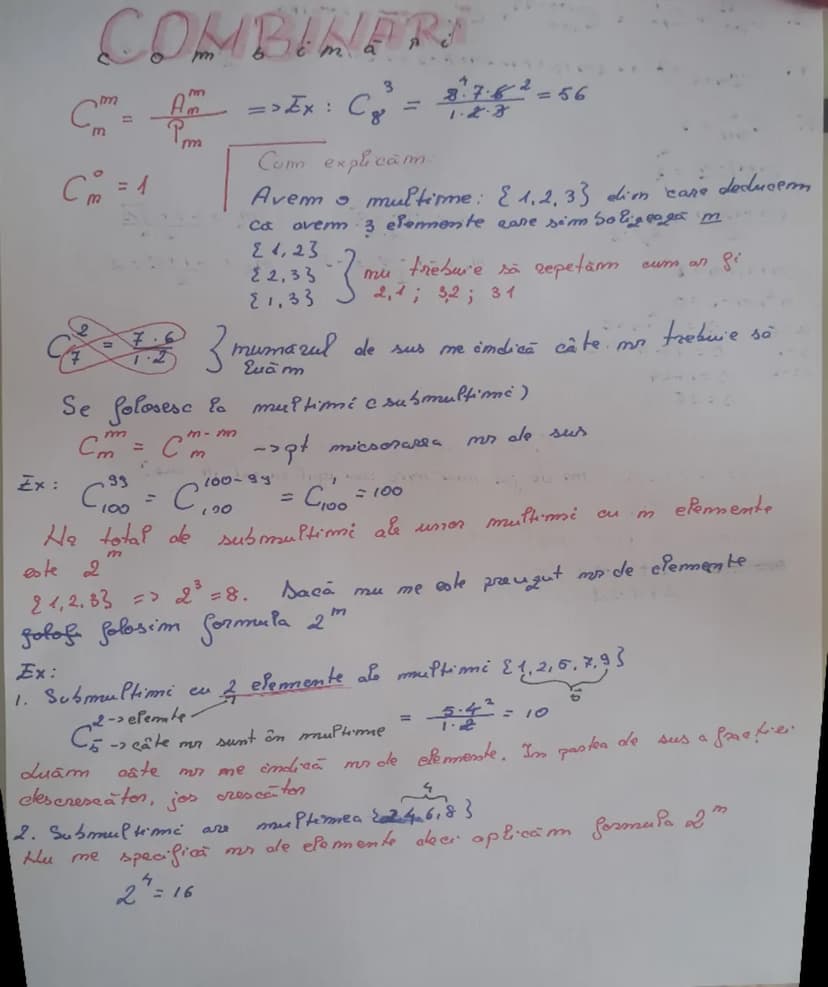 COMBINĂRI
combinări
C_n^m = A_n^m / P_m => Ex: C_8^3 = 8·7·6 / 1·2·3 = 56
C_n^0 = 1
Cum explicăm
Avem o mulțime: {1,2,3} din care deducem
că avem 3 elemente care simbolizează n
{1,2}
{2,3} } nu trebuie să repetăm cum ar fi
{1,3} 2,1; 3,2; 3 1
C_7^2 = 7·6 / 1·2 } numărul de sus ne indică câte nr trebuie să
luăm
Se folosesc la mulțimi (submulțimi)
C_n^m = C_n^{n-m} -> pt micsorarea nr de sus
Ex: C_100^99 = C_100^{100-99} = C_100^1 = 100
Nr total de submulțimi ale unor mulțimi cu n elemente
este 2^n
{1,2,3} => 2^3 = 8. Dacă nu ne este precizat nr de elemente
folosim formula 2^n
Ex:
1. Submulțimi cu 2 elemente ale mulțimi {1,2,5,7,9}
5
C_5^2 2->elemente 5->câte nr sunt în mulțime = 5·4 / 1·2 = 10
Luăm câte nr ne indică nr de elemente. În partea de sus a fracției
descrescător, jos crescător
4
2. Submulțimi are mulțimea {2,4,6,8}
Nu ne specifică nr de elemente deci aplicăm formula 2^n
2^4 = 16